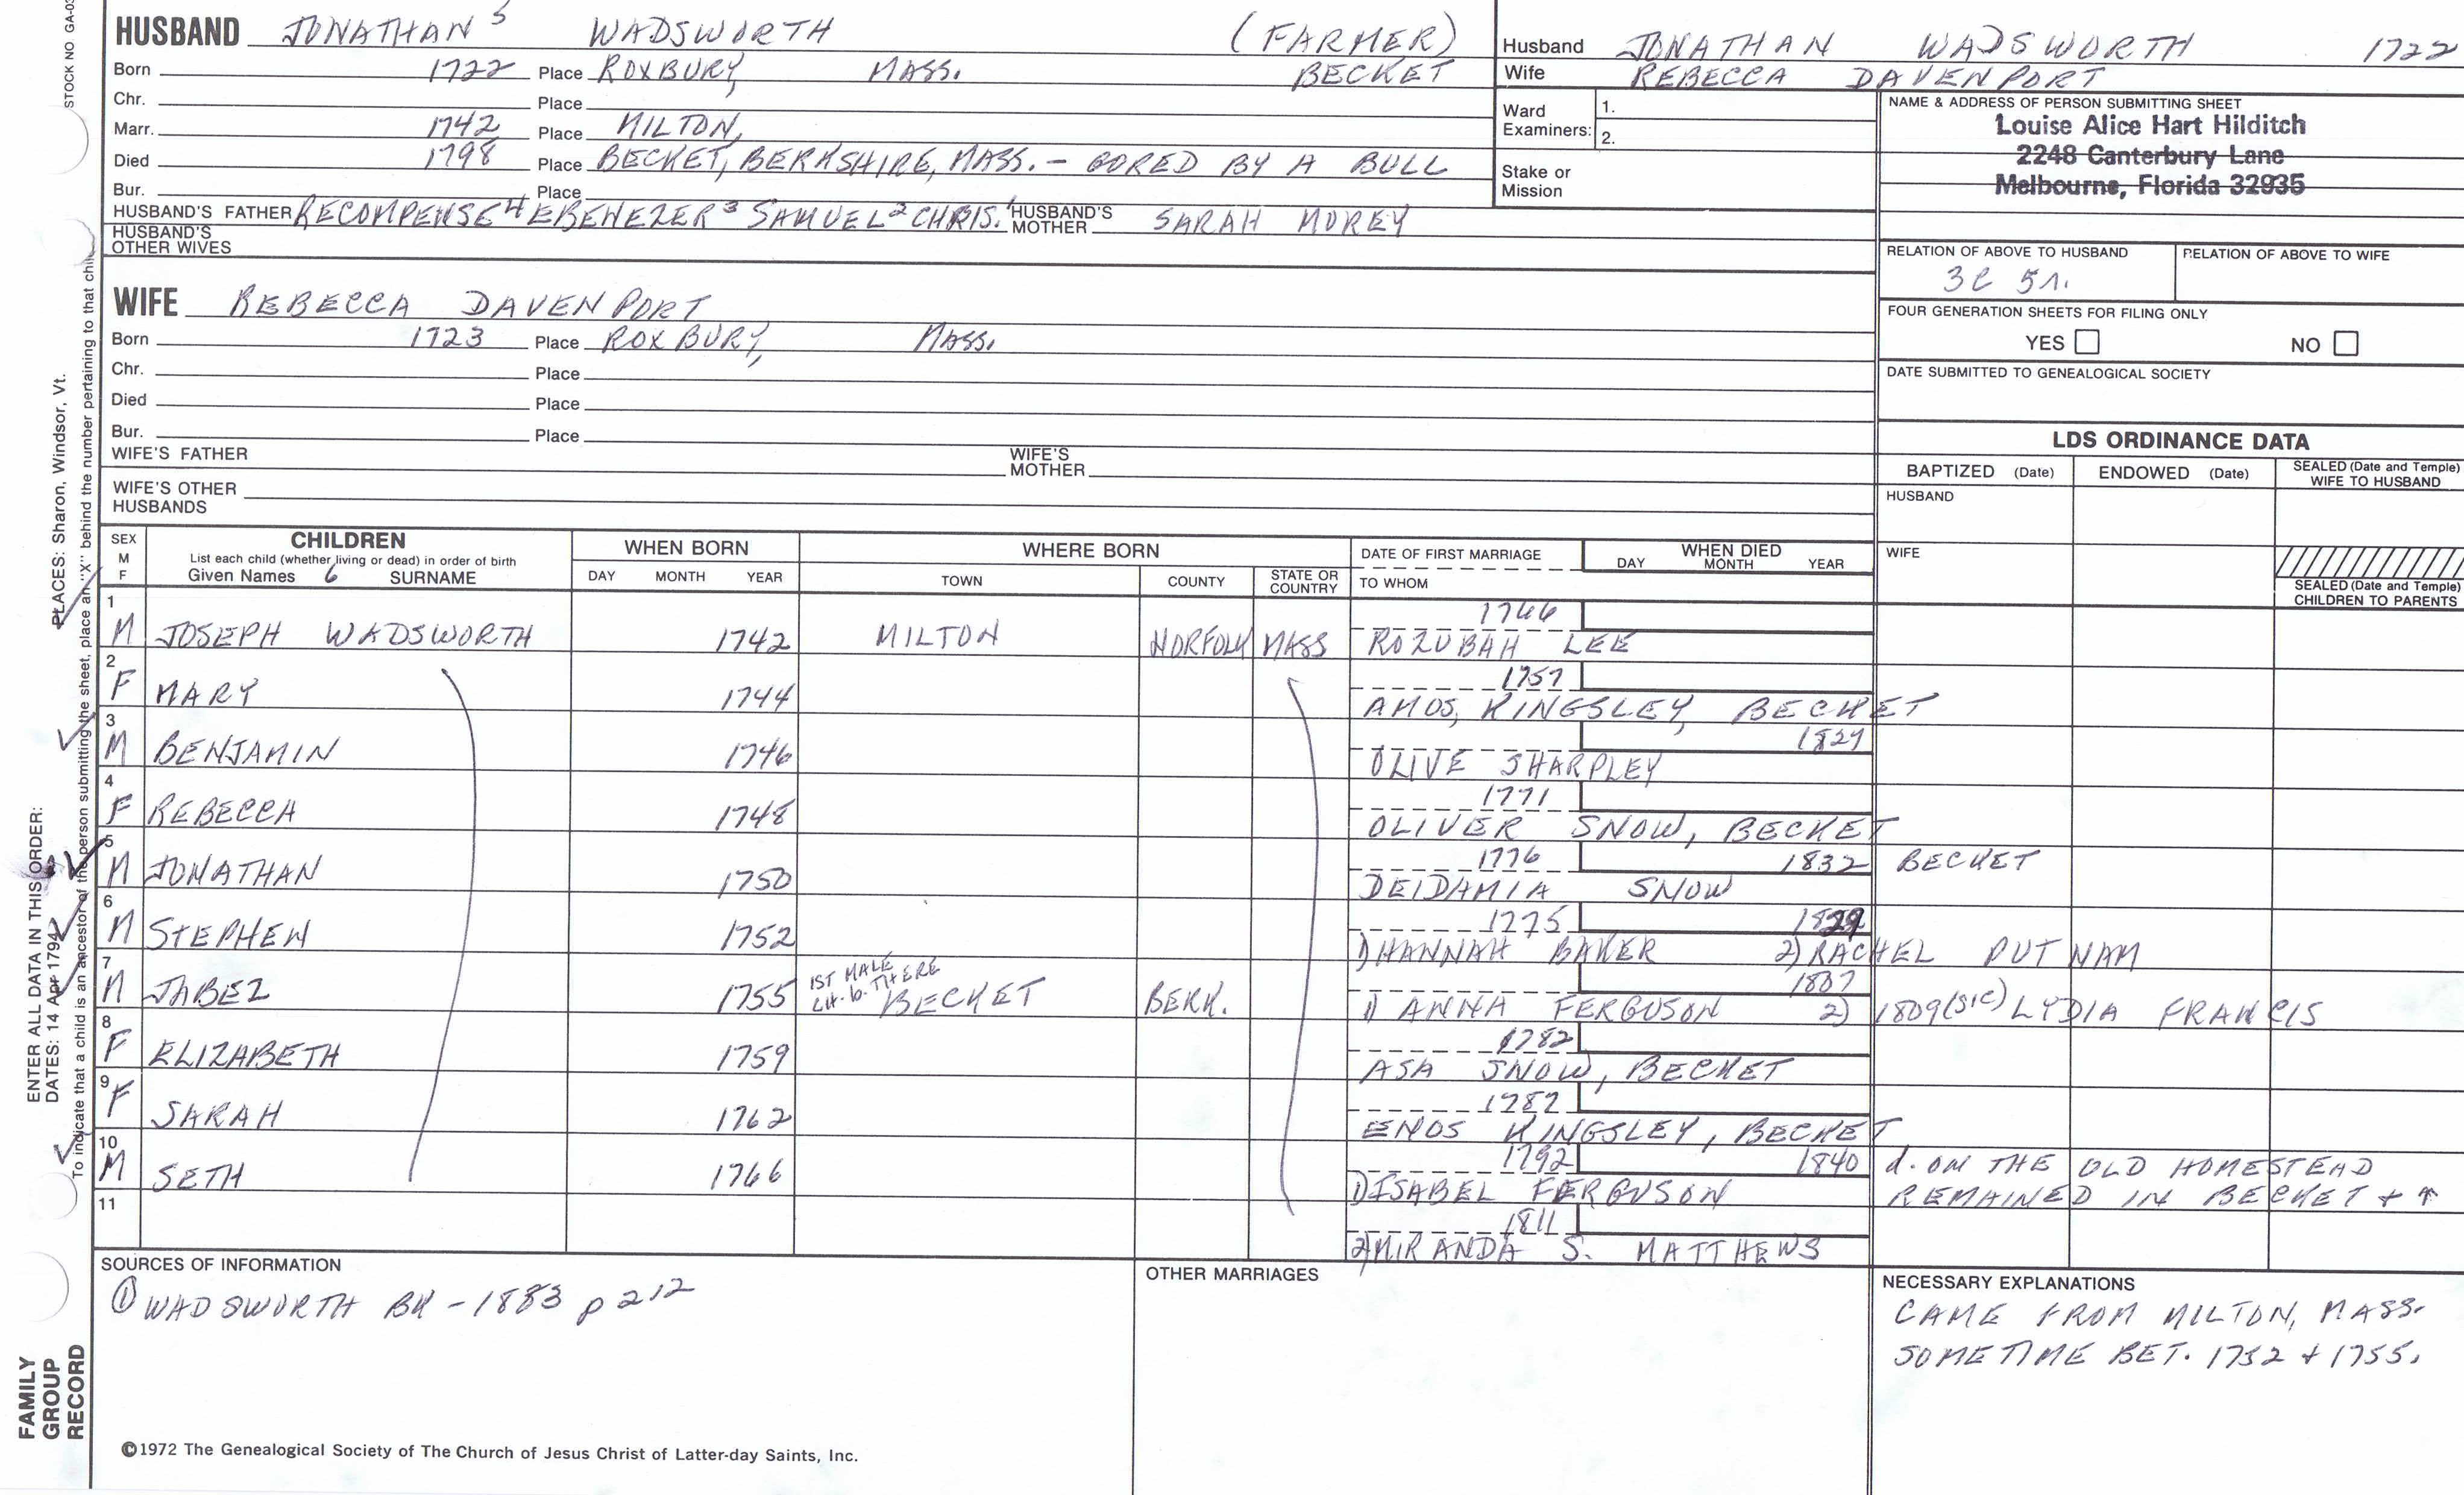 STOCK NO. GA-03
HUSBAND JONATHAN 5 WADSWORTH (FARMER)
Born 1722 Place ROXBURY, MASS. BECKET
Chr. Place
Marr. 1742 Place MILTON,
Died 1798 Place BECKET, BERKSHIRE, MASS. - GORED BY A BULL
Bur. Place
HUSBAND'S FATHER RECOMPENSE 4 EBENEZER 3 SAMUEL 2 CHRIS. 1 HUSBAND'S MOTHER SARAH MOREY
HUSBAND'S OTHER WIVES
Husband JONATHAN WADSWORTH 1722
Wife REBECCA DAVENPORT
Ward Examiners: 1.
2.
Stake or Mission
NAME & ADDRESS OF PERSON SUBMITTING SHEET
Louise Alice Hart Hilditch
2248 Canterbury Lane
Melbourne, Florida 32935
RELATION OF ABOVE TO HUSBAND RELATION OF ABOVE TO WIFE
3C 5r.
FOUR GENERATION SHEETS FOR FILING ONLY
YES NO
DATE SUBMITTED TO GENEALOGICAL SOCIETY
WIFE REBECCA DAVENPORT
Born 1723 Place ROXBURY, MASS.
Chr. Place
Died Place
Bur. Place
WIFE'S FATHER WIFE'S MOTHER
WIFE'S OTHER HUSBANDS
LDS ORDINANCE DATA
BAPTIZED (Date) ENDOWED (Date) SEALED (Date and Temple) WIFE TO HUSBAND
HUSBAND
WIFE
SEALED (Date and Temple) CHILDREN TO PARENTS
SEX M F CHILDREN WHEN BORN WHERE BORN DATE OF FIRST MARRIAGE WHEN DIED
List each child (whether living or dead) in order of birth
Given Names 6 SURNAME DAY MONTH YEAR TOWN COUNTY STATE OR COUNTRY TO WHOM DAY MONTH YEAR
1 1766
M JOSEPH WADSWORTH 1742 MILTON NORFOLK MASS ROZUBAH LEE
2 1757
F MARY 1744 AMOS, KINGSLEY, BECKET
3 1827
M BENJAMIN 1746 OLIVE SHARPLEY
4 1771
F REBECCA 1748 OLIVER SNOW, BECKET
5 1776 1832 BECKET
M JONATHAN 1750 DEIDAMIA SNOW
6 1775 1829
M STEPHEN 1752 1) HANNAH BAKER 2) RACHEL PUTNAM
7 1ST MALE CH. b. THERE 1807
M JABEZ 1755 BECKET BERK. 1) ANNA FERGUSON 2) 1809 (SIC) LYDIA FRANCIS
8 1782
F ELIZABETH 1759 ASA SNOW, BECKET
9 1787
F SARAH 1762 ENOS KINGSLEY, BECKET
10 1792 1840 d. ON THE OLD HOMESTEAD
M SETH 1766 1) ISABEL FERGUSON REMAINED IN BECKET + ↑
11 1811
2) MIRANDA S. MATTHEWS
SOURCES OF INFORMATION
① WADSWORTH BK - 1883 p 212
OTHER MARRIAGES
NECESSARY EXPLANATIONS
CAME FROM MILTON, MASS.
SOMETIME BET. 1752 + 1755.
©1972 The Genealogical Society of The Church of Jesus Christ of Latter-day Saints, Inc.
FAMILY GROUP RECORD
ENTER ALL DATA IN THIS ORDER:
DATES: 14 Apr 1794
PLACES: Sharon, Windsor, Vt.
To indicate that a child is an ancestor of the person submitting the sheet, place an "X" behind the number pertaining to that chil